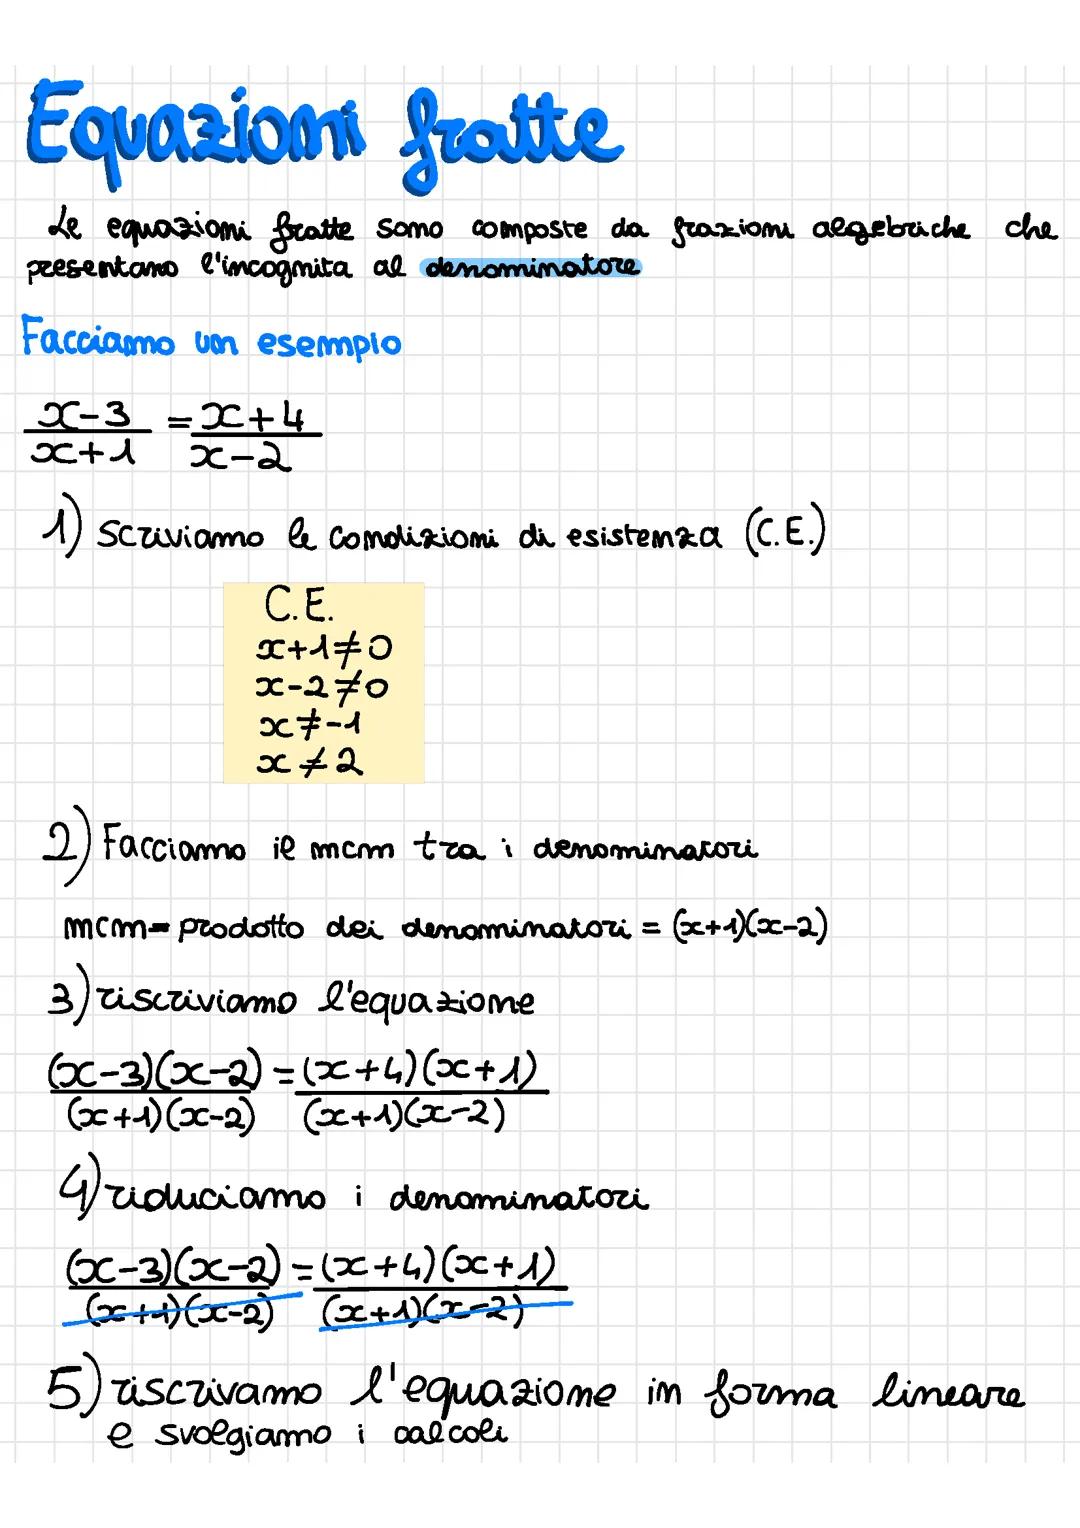 Equazioni fratte
Le equazioni fratte sono composte da frazioni algebriche che
presentano l'incognita al denominatore
Facciamo un esempio
x-3 = x+4
x+1 x-2
1) scriviamo le condizioni di esistenza (C.E.)
C.E.
x+1≠0
x-2≠0
x≠-1
x≠2
2) Facciamo il mcm tra i denominatori
mcm= prodotto dei denominatori = (x+1)(x-2)
3) riscriviamo l'equazione
(x-3)(x-2) = (x+4)(x+1)
(x+1)(x-2) (x+1)(x-2)
4) riduciamo i denominatori
(x-3)(x-2) = (x+4)(x+1)
(x+1)(x-2) (x+1)(x-2)
5) riscrivamo l'equazione in forma lineare
e svolgiamo i calcoli